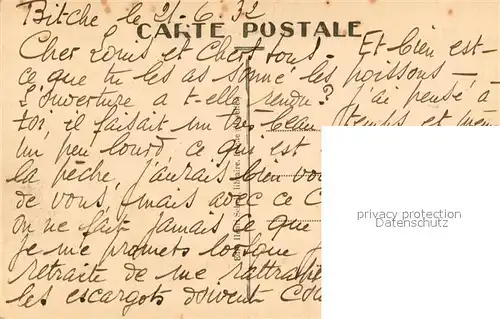 Bitche le 21-6.32
CARTE POSTALE
Cher Louis et Chers tous - Et bien est-
ce que tu les as sonné les poissons -
L'ouverture a t-elle rendu? j'ai pensé à
toi, il faisait un très beau temps et
un peu lourd, ce qui est
la pêche, j'aurais bien
de vous, mais avec ce
on ne fait jamais ce que
je me promets lorsque
retraite de me
les escargots doivent
privacy protection
Datenschutz